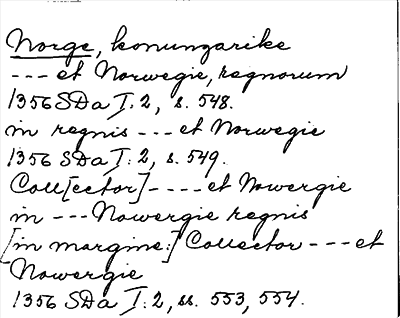 Norge, konungarike
--- et Norwegie, regnorum
1356 SDa I: 2, s. 548.
in regnis --- et Norwegie
1356 SDa I: 2, s. 549.
Coll[ector] ---- et Nowergie
in --- Nowergie regnis
[in margine:] Collector --- et
Nowergie
1356 SDa I: 2, ss. 553, 554.